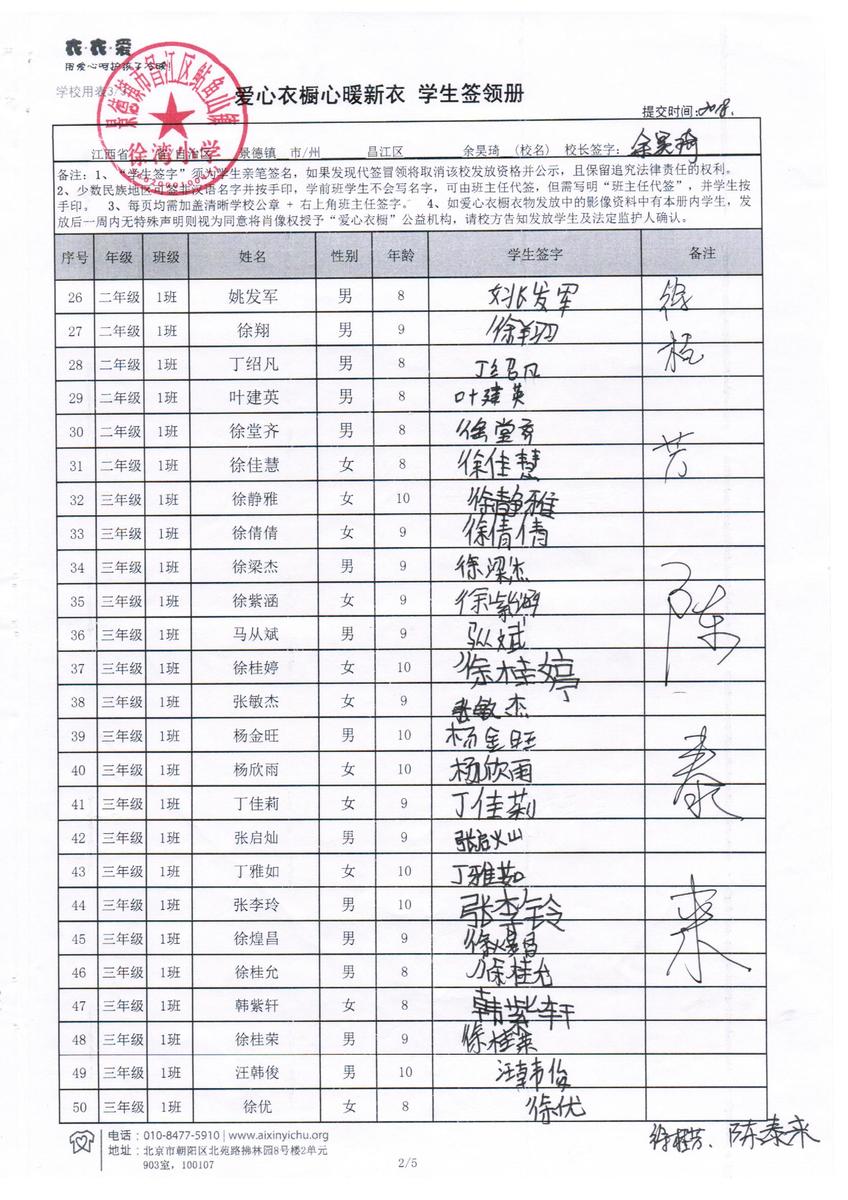 衣·衣·爱
用爱心呵护孩子冷暖!
学校用表3/3
爱心衣橱心暖新衣 学生签领册
提交时间:2018.
景德镇市昌江区鲇鱼山镇
徐湾小学
江西省 省/自治区 景德镇 市/州 昌江区 余昊琦 (校名) 校长签字: 余昊琦
备注: 1、“学生签字”须为学生亲笔签名,如果发现代签冒领将取消该校发放资格并公示,且保留追究法律责任的权利。
2、少数民族地区可签非汉语名字并按手印,学前班学生不会写名字,可由班主任代签,但需写明“班主任代签”,并学生按
手印。 3、每页均需加盖清晰学校公章 + 右上角班主任签字。 4、如爱心衣橱衣物发放中的影像资料中有本册内学生,发
放后一周内无特殊声明则视为同意将肖像权授予“爱心衣橱”公益机构,请校方告知发放学生及法定监护人确认。
序号 年级 班级 姓名 性别 年龄 学生签字 备注
26 二年级 1班 姚发军 男 8 姚发军 徐
27 二年级 1班 徐翔 男 9 徐翔
28 二年级 1班 丁绍凡 男 8 丁绍凡
29 二年级 1班 叶建英 男 8 叶建英
30 二年级 1班 徐堂齐 男 8 徐堂齐
31 二年级 1班 徐佳慧 女 8 徐佳慧 芳
32 三年级 1班 徐静雅 女 10 徐静雅
33 三年级 1班 徐倩倩 女 9 徐倩倩
34 三年级 1班 徐梁杰 男 9 徐梁杰
35 三年级 1班 徐紫涵 女 9 徐紫涵 陈
36 三年级 1班 马从斌 男 9 马从斌
37 三年级 1班 徐桂婷 女 10 徐桂婷
38 三年级 1班 张敏杰 女 9 张敏杰
39 三年级 1班 杨金旺 男 10 杨金旺 泰
40 三年级 1班 杨欣雨 女 10 杨欣雨
41 三年级 1班 丁佳莉 女 9 丁佳莉
42 三年级 1班 张启灿 男 9 张启灿
43 三年级 1班 丁雅如 女 10 丁雅茹
44 三年级 1班 张李玲 男 10 张李铃 来
45 三年级 1班 徐煌昌 男 9 徐煌昌
46 三年级 1班 徐桂允 男 8 徐桂允
47 三年级 1班 韩紫轩 女 8 韩紫轩
48 三年级 1班 徐桂荣 男 9 徐桂荣
49 三年级 1班 汪韩俊 男 10 汪韩俊
50 三年级 1班 徐优 女 8 徐优
电话: 010-8477-5910 | www.aixinyichu.org
地址: 北京市朝阳区北苑路拂林园8号楼2单元
903室, 100107
2/5
陈泰来